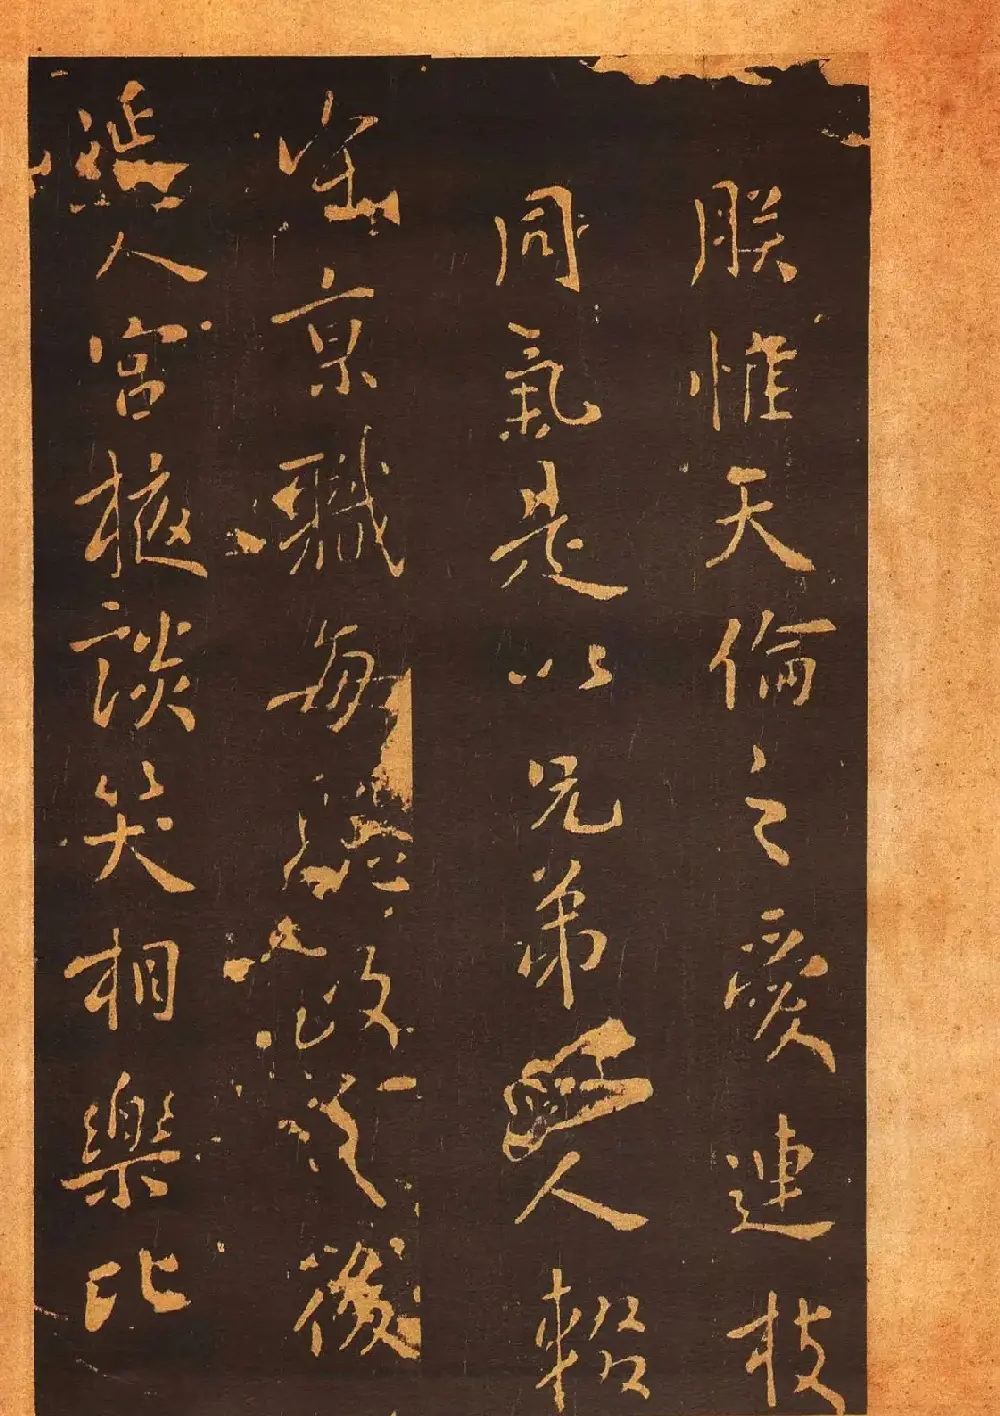 朕惟天倫之愛連枝
同氣是以兄弟人輟
京職每聽政之後
延入宮掖談笑相樂比